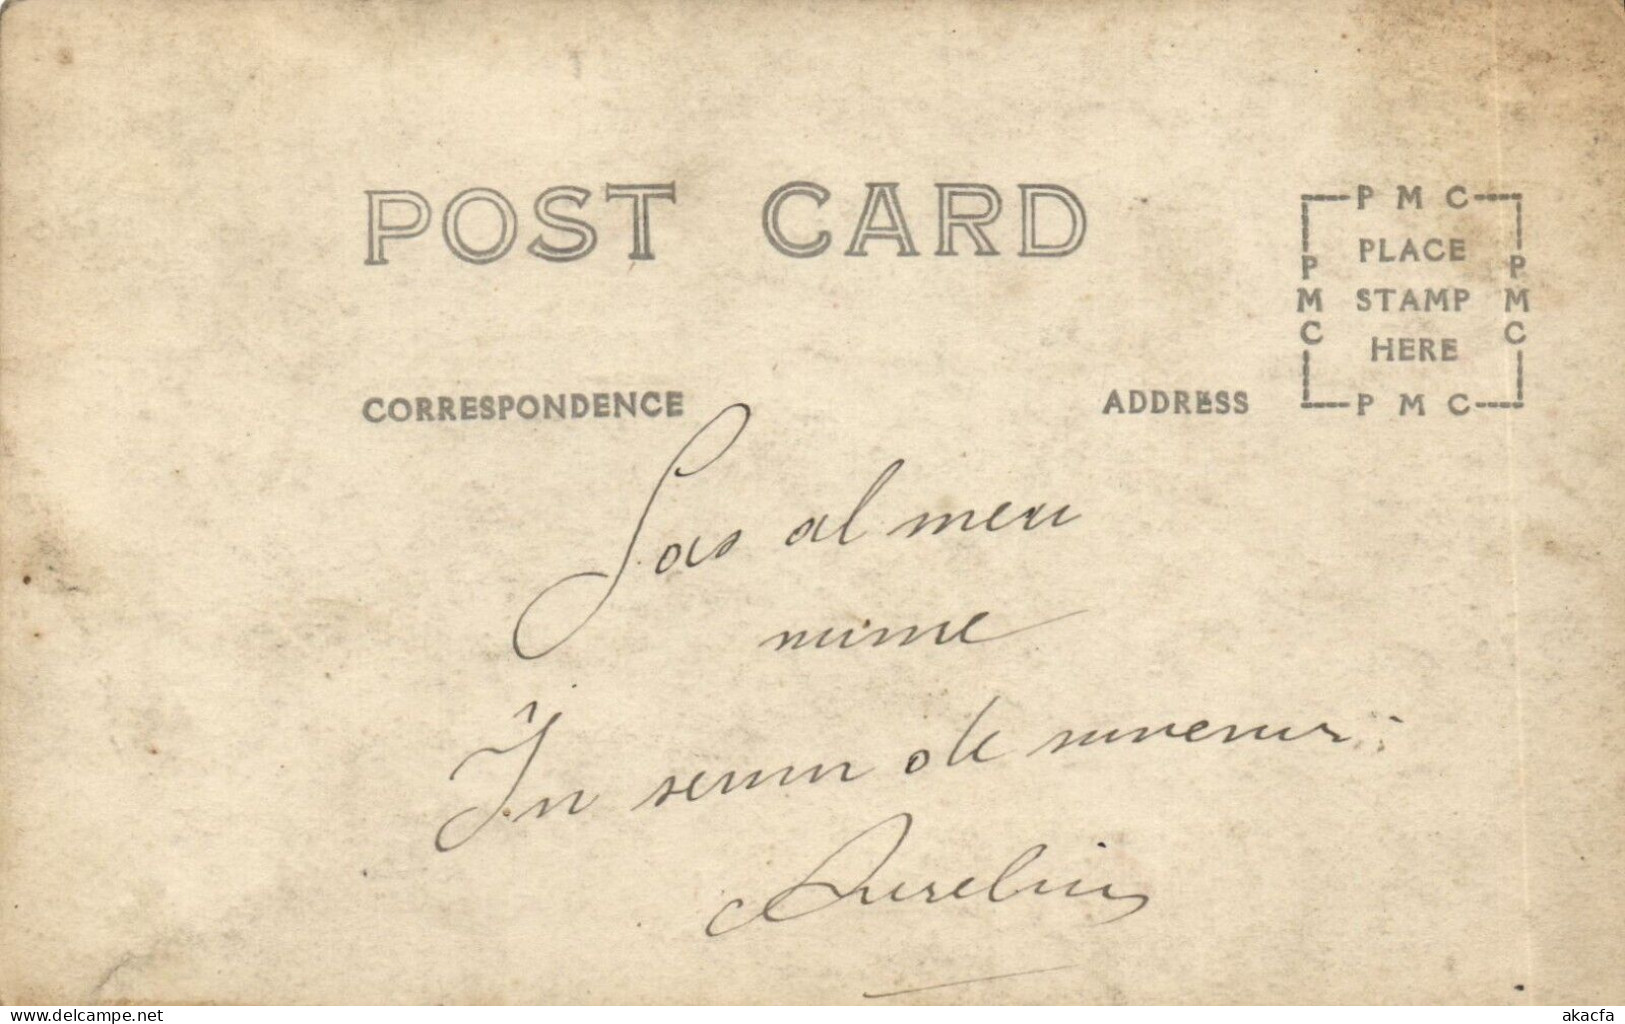 POST CARD
P M C
PLACE
STAMP
HERE
P M C
P M C
P M C
CORRESPONDENCE
ADDRESS
Las al meu
nume
In semn de suvenir
Aureliu
www.delcampe.net
akacfa